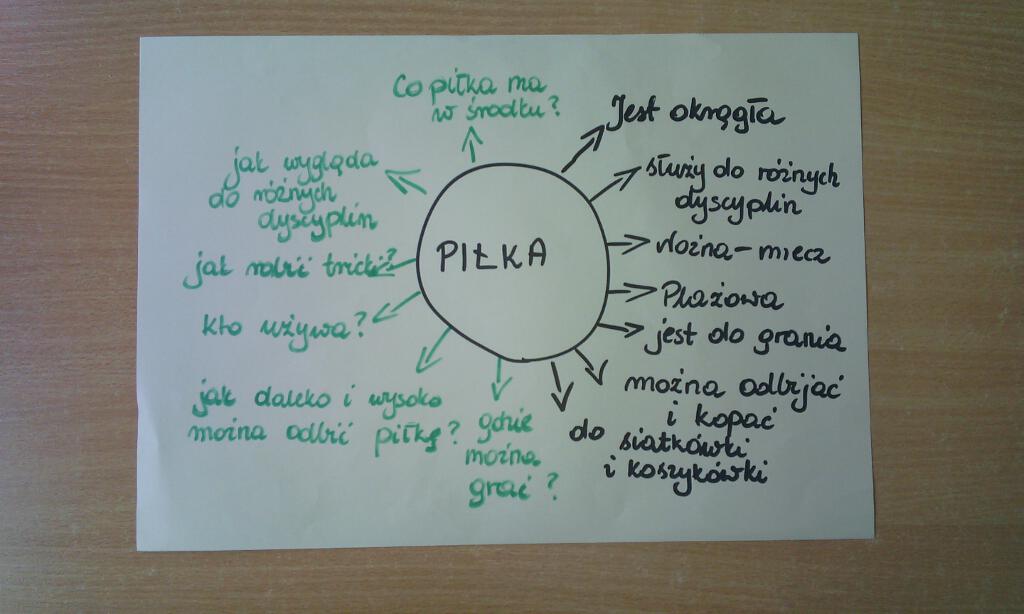 PIŁKA
Co piłka ma
w środku?
Jest okrągła
służy do różnych
dyscyplin
Nożna - mecz
Plażowa
jest do grania
można odbijać
i kopać
do siatkówki
i koszykówki
gdzie
można
grać?
jak daleko i wysoko
można odbić piłkę?
kto używa?
jak robić tricki?
jak wygląda
do różnych
dyscyplin